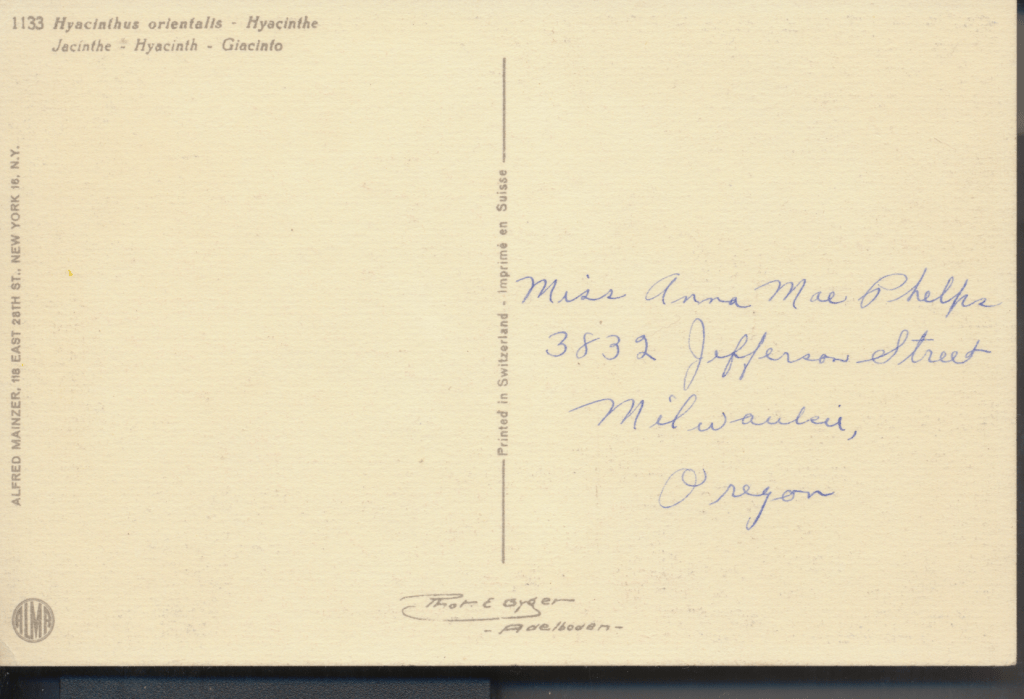 1133 Hyacinthus orientalis - Hyacinthe
Jacinthe - Hyacinth - Giacinto
ALFRED MAINZER, 118 EAST 28TH ST., NEW YORK 16, N.Y.
Printed in Switzerland - Imprimé en Suisse
Miss Anna Mae Phelps
3832 Jefferson Street
Milwaukie,
Oregon
Phot. E Gyger
- Adelboden -
ALMA